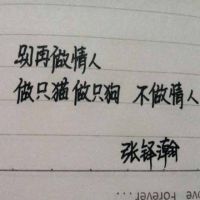 别再做情人
做只猫做只狗 不做情人
张铎瀚
Love Forever......